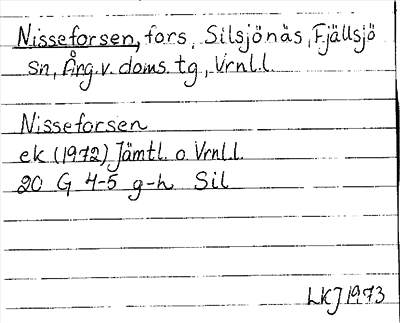 Nisseforsen, fors, Silsjönäs, Fjällsjö
sn, Ång.v. doms. tg., Vrnl.l.
Nisseforsen
ek (1972) Jämtl. o. Vrnl.l.
20 G 4-5 g-h Sil
LKJ 1973